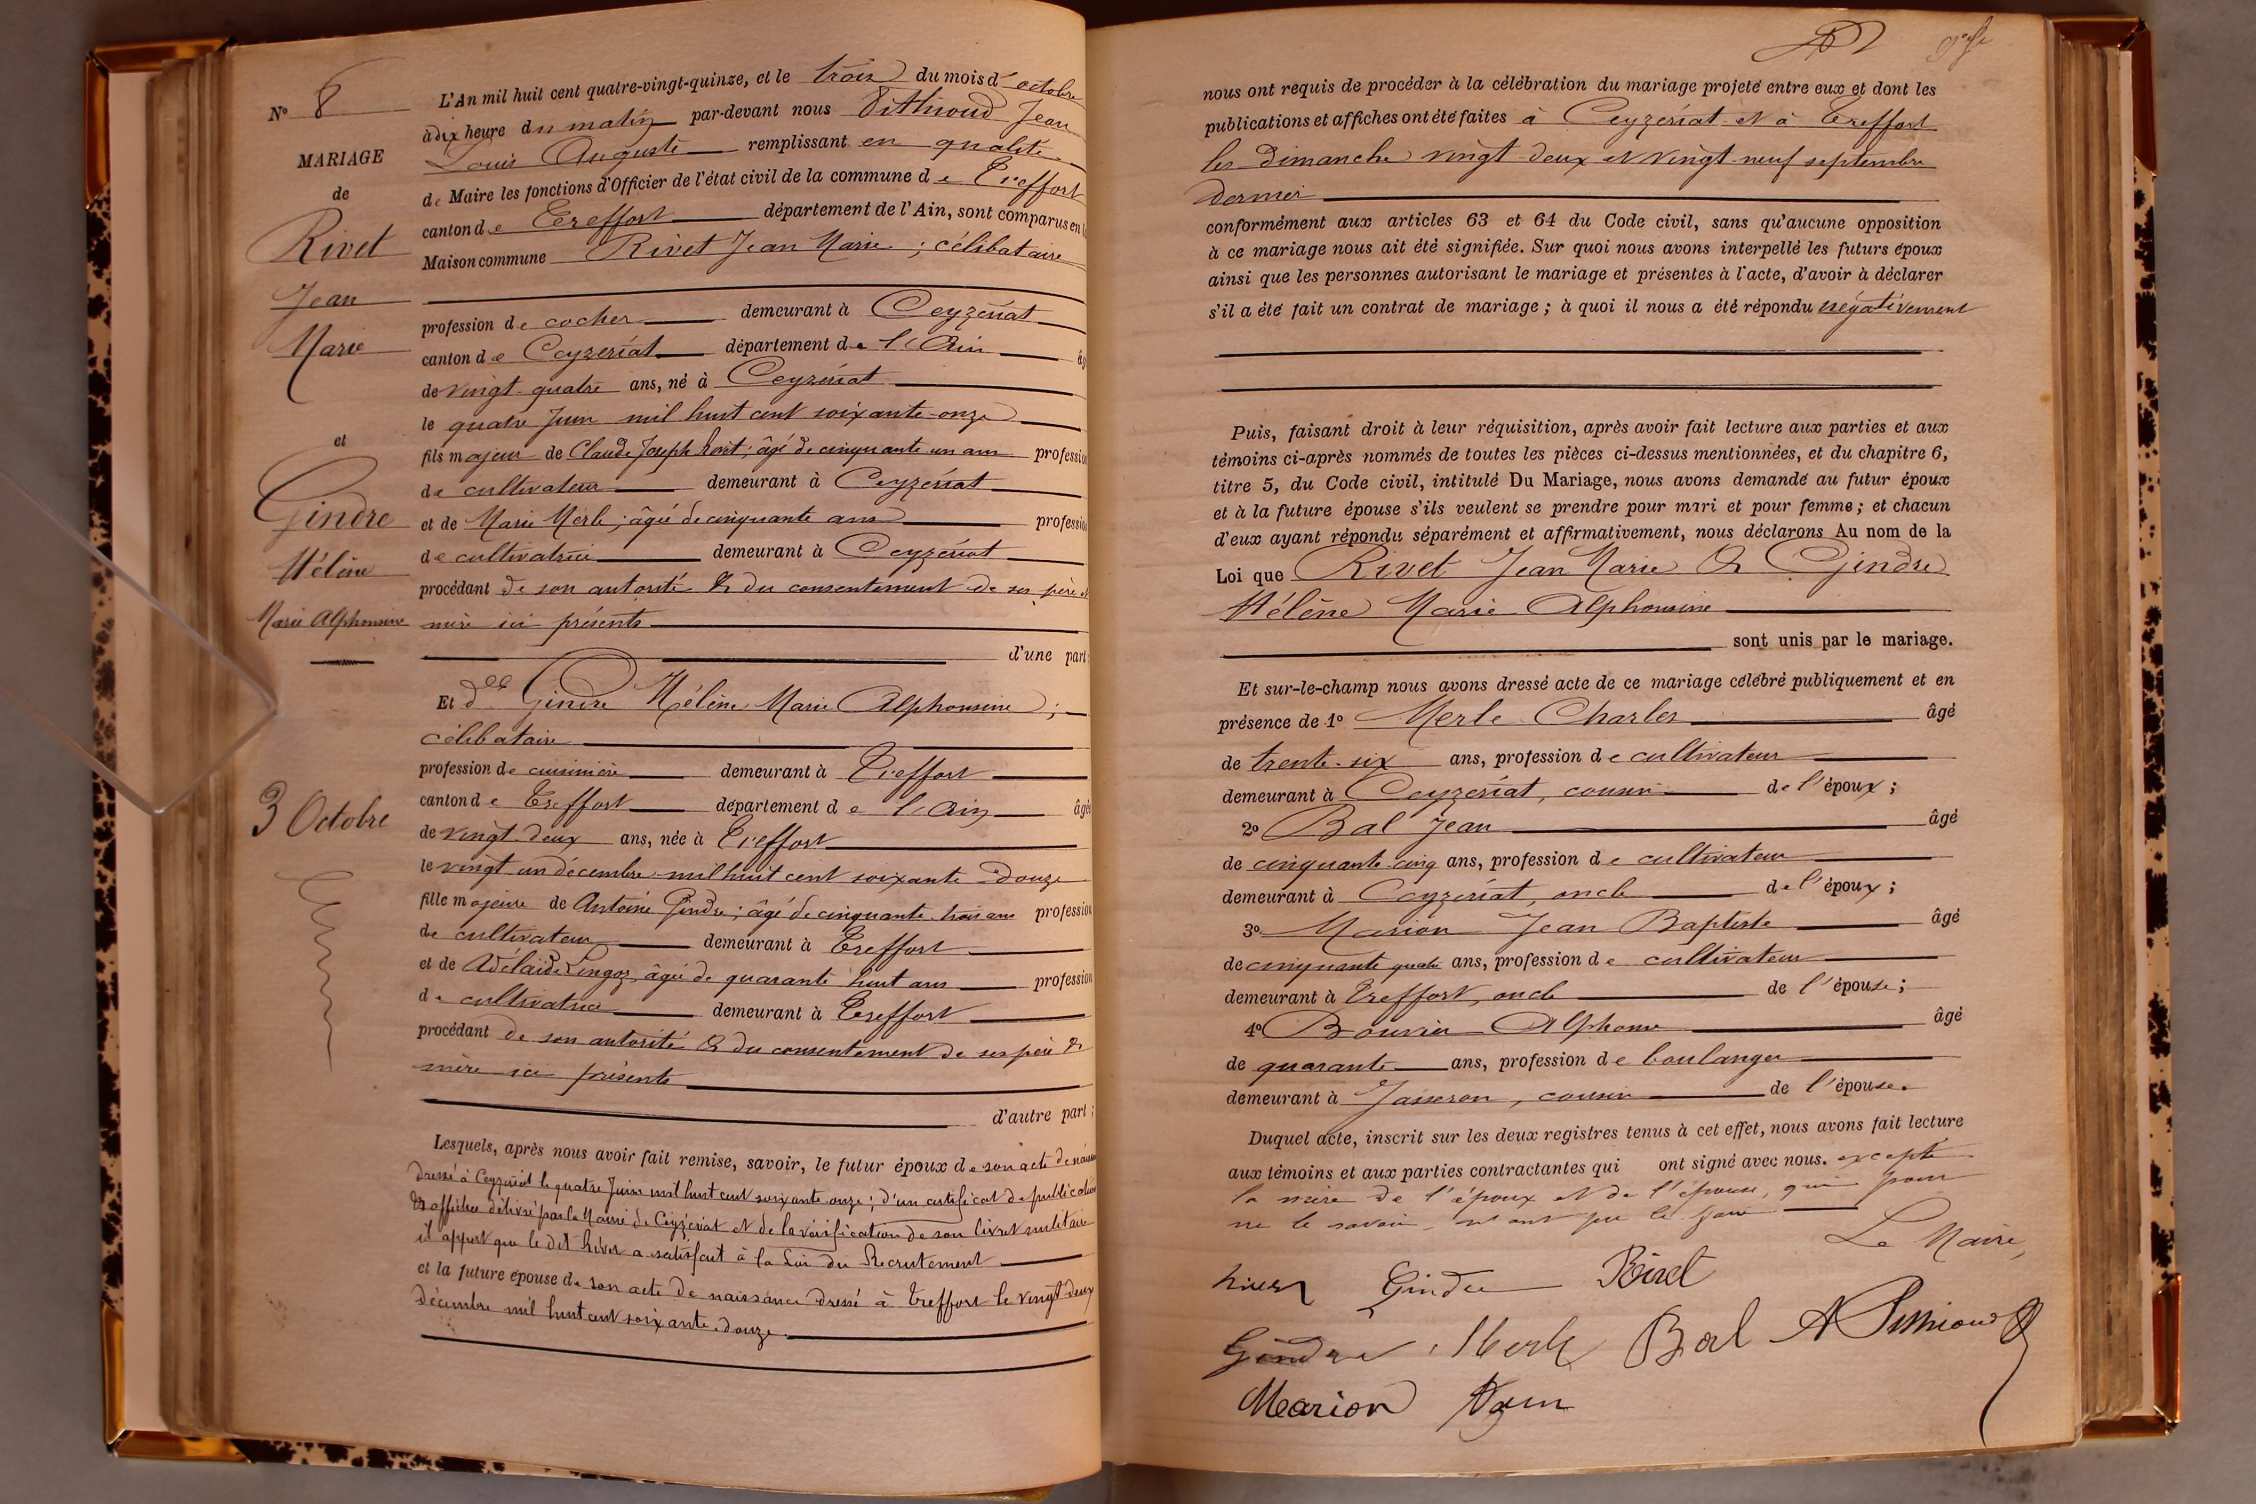 N° 8
MARIAGE
de
Rivet
Jean
Marie
et
Gindre
Hélène
Marie Alphonsine
3 Octobre
L'An mil huit cent quatre-vingt-quinze, et le trois du mois d' octobre
à dix heure du matin par-devant nous Jean
Louis Auguste remplissant en qualité
de Maire les fonctions d'Officier de l'état civil de la commune de Treffort
canton de Treffort département de l'Ain, sont comparus en la
Maison commune Rivet Jean Marie ; célibataire
profession de cocher demeurant à Ceyzériat
canton de Ceyzeriat département de l'Ain âgé
de vingt-quatre ans, né à Ceyzériat
le quatre Juin mil huit cent soixante-onze
fils majeur de Claude Joseph Rivet ; âgé de cinquante un ans profession
de cultivateur demeurant à Ceyzériat
et de Marie Merle ; âgée de cinquante ans profession
de cultivatrice demeurant à Ceyzériat
procédant de son autorité & du consentement de ses père et
mère ici présents
d'une part ;
Et dlle Gindre Hélène Marie Alphonsine ;
célibataire
profession de cuisinière demeurant à Treffort
canton de Treffort département de l'Ain âgée
de vingt-deux ans, née à Treffort
le vingt-un décembre mil huit cent soixante-douze
fille majeure de Antoine Gindre ; âgé de cinquante-trois ans profession
de cultivateur demeurant à Treffort
et de Adélaïde âgée de quarante huit ans profession
de cultivatrice demeurant à Treffort
procédant de son autorité & du consentement de ses père &
mère ici présents
d'autre part ;
Lesquels, après nous avoir fait remise, savoir, le futur époux de son acte de naissance
dressé à Ceyzériat le quatre Juin mil huit cent soixante onze ; d'un certificat de publication
& affiches délivré par la Mairie de Ceyzériat et de la vérification de son livret militaire
il appert que le dit Rivet a satisfait à la Loi du Recrutement
et la future épouse de son acte de naissance dressé à Treffort le vingt-deux
décembre mil huit cent soixante-douze.
nous ont requis de procéder à la célébration du mariage projeté entre eux et dont les
publications et affiches ont été faites à Ceyzériat et à Treffort
les dimanche vingt-deux et vingt-neuf septembre
dernier
conformément aux articles 63 et 64 du Code civil, sans qu'aucune opposition
à ce mariage nous ait été signifiée. Sur quoi nous avons interpellé les futurs époux
ainsi que les personnes autorisant le mariage et présentes à l'acte, d'avoir à déclarer
s'il a été fait un contrat de mariage ; à quoi il nous a été répondu négativement
Puis, faisant droit à leur réquisition, après avoir fait lecture aux parties et aux
témoins ci-après nommés de toutes les pièces ci-dessus mentionnées, et du chapitre 6,
titre 5, du Code civil, intitulé Du Mariage, nous avons demandé au futur époux
et à la future épouse s'ils veulent se prendre pour mari et pour femme ; et chacun
d'eux ayant répondu séparément et affirmativement, nous déclarons Au nom de la
Loi que Rivet Jean Marie & Gindre
Hélène Marie Alphonsine
sont unis par le mariage.
Et sur-le-champ nous avons dressé acte de ce mariage célébré publiquement et en
présence de 1° Merle Charles âgé
de trente-six ans, profession de cultivateur
demeurant à Ceyzériat, cousin de l'époux ;
2° Bal Jean âgé
de cinquante-cinq ans, profession de cultivateur
demeurant à Ceyzeriat, oncle de l'époux ;
3° Marion Jean Baptiste âgé
de cinquante quatre ans, profession de cultivateur
demeurant à Treffort, oncle de l'épouse ;
4° Bouvier Alphonse âgé
de quarante ans, profession de boulanger
demeurant à Jasseron, cousin de l'épouse.
Duquel acte, inscrit sur les deux registres tenus à cet effet, nous avons fait lecture
aux témoins et aux parties contractantes qui ont signé avec nous. excepté
la mère de l'époux et de l'épouse, qui pour
ne le savoir, n'ont pu le faire
Le Maire,
Rivet Gindre Rivet
Gindre Merle Bal
Marion